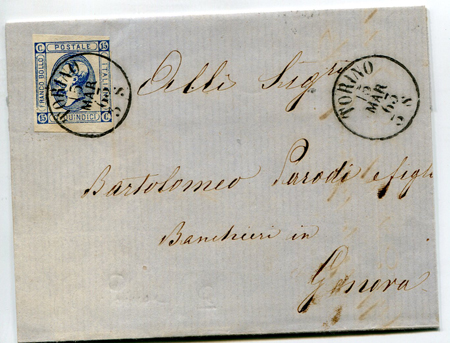 C. POSTALE 15
FRANCO BOLLO
ITALIANO
15 QUINDICI C.
TORINO
15
MAR
63
3 S
TORINO
15
MAR
63
3 S
Alli Sigri
Bartolomeo Parodi e figli
Banchieri in
Genova